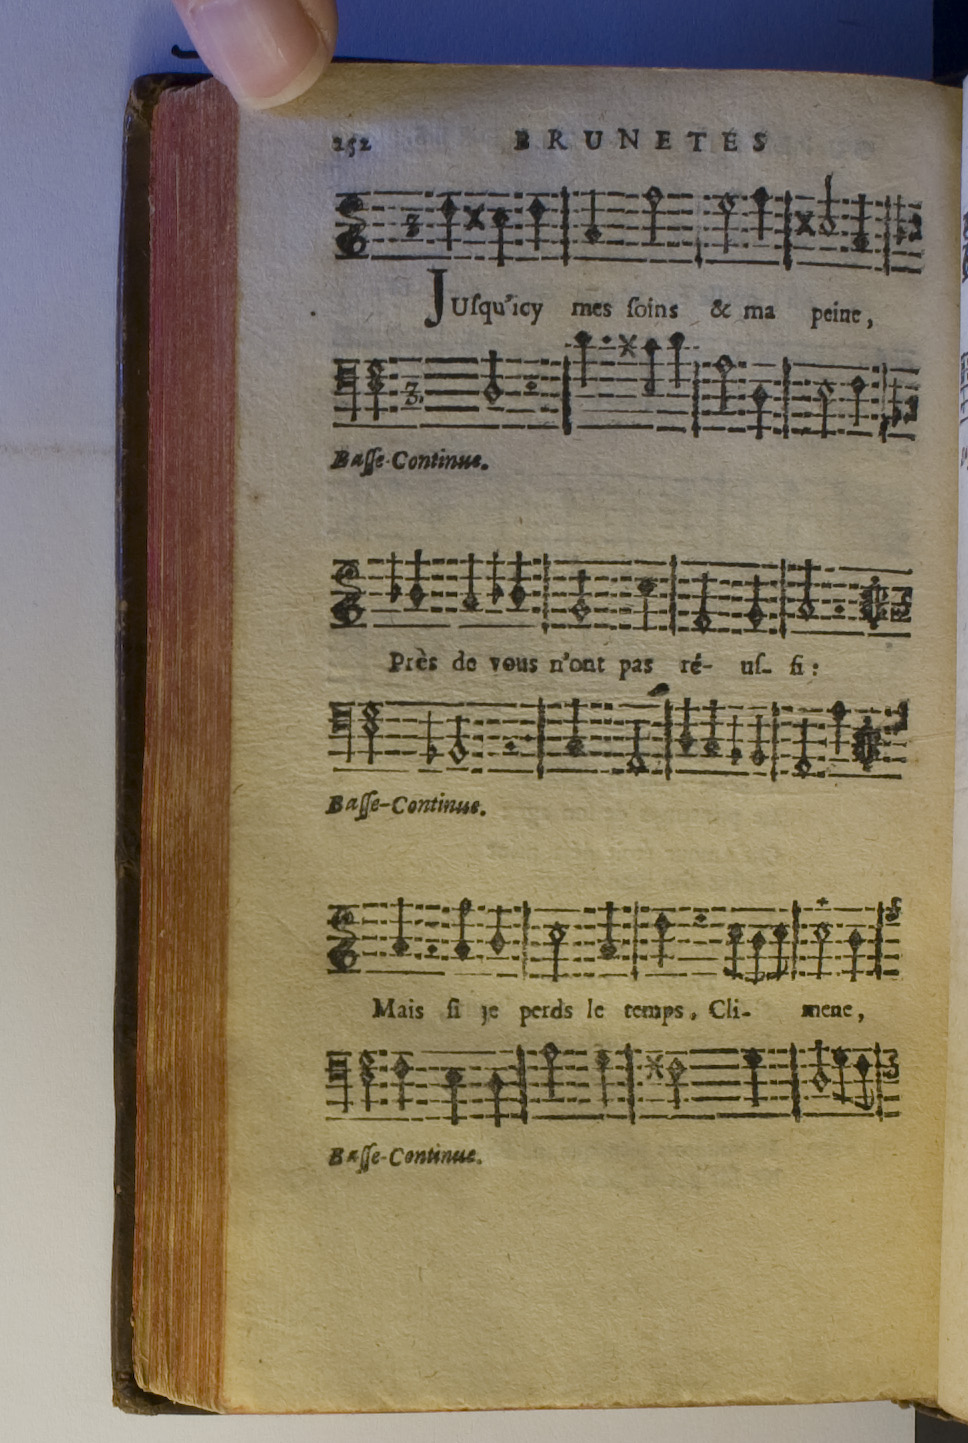 252 BRUNETES
JUſqu'icy mes ſoins & ma peine,
Baſſe-Continue.
Près de vous n'ont pas ré- uſ- ſi :
Baſſe-Continue.
Mais ſi je perds le temps, Cli- mene,
Baſſe-Continue.